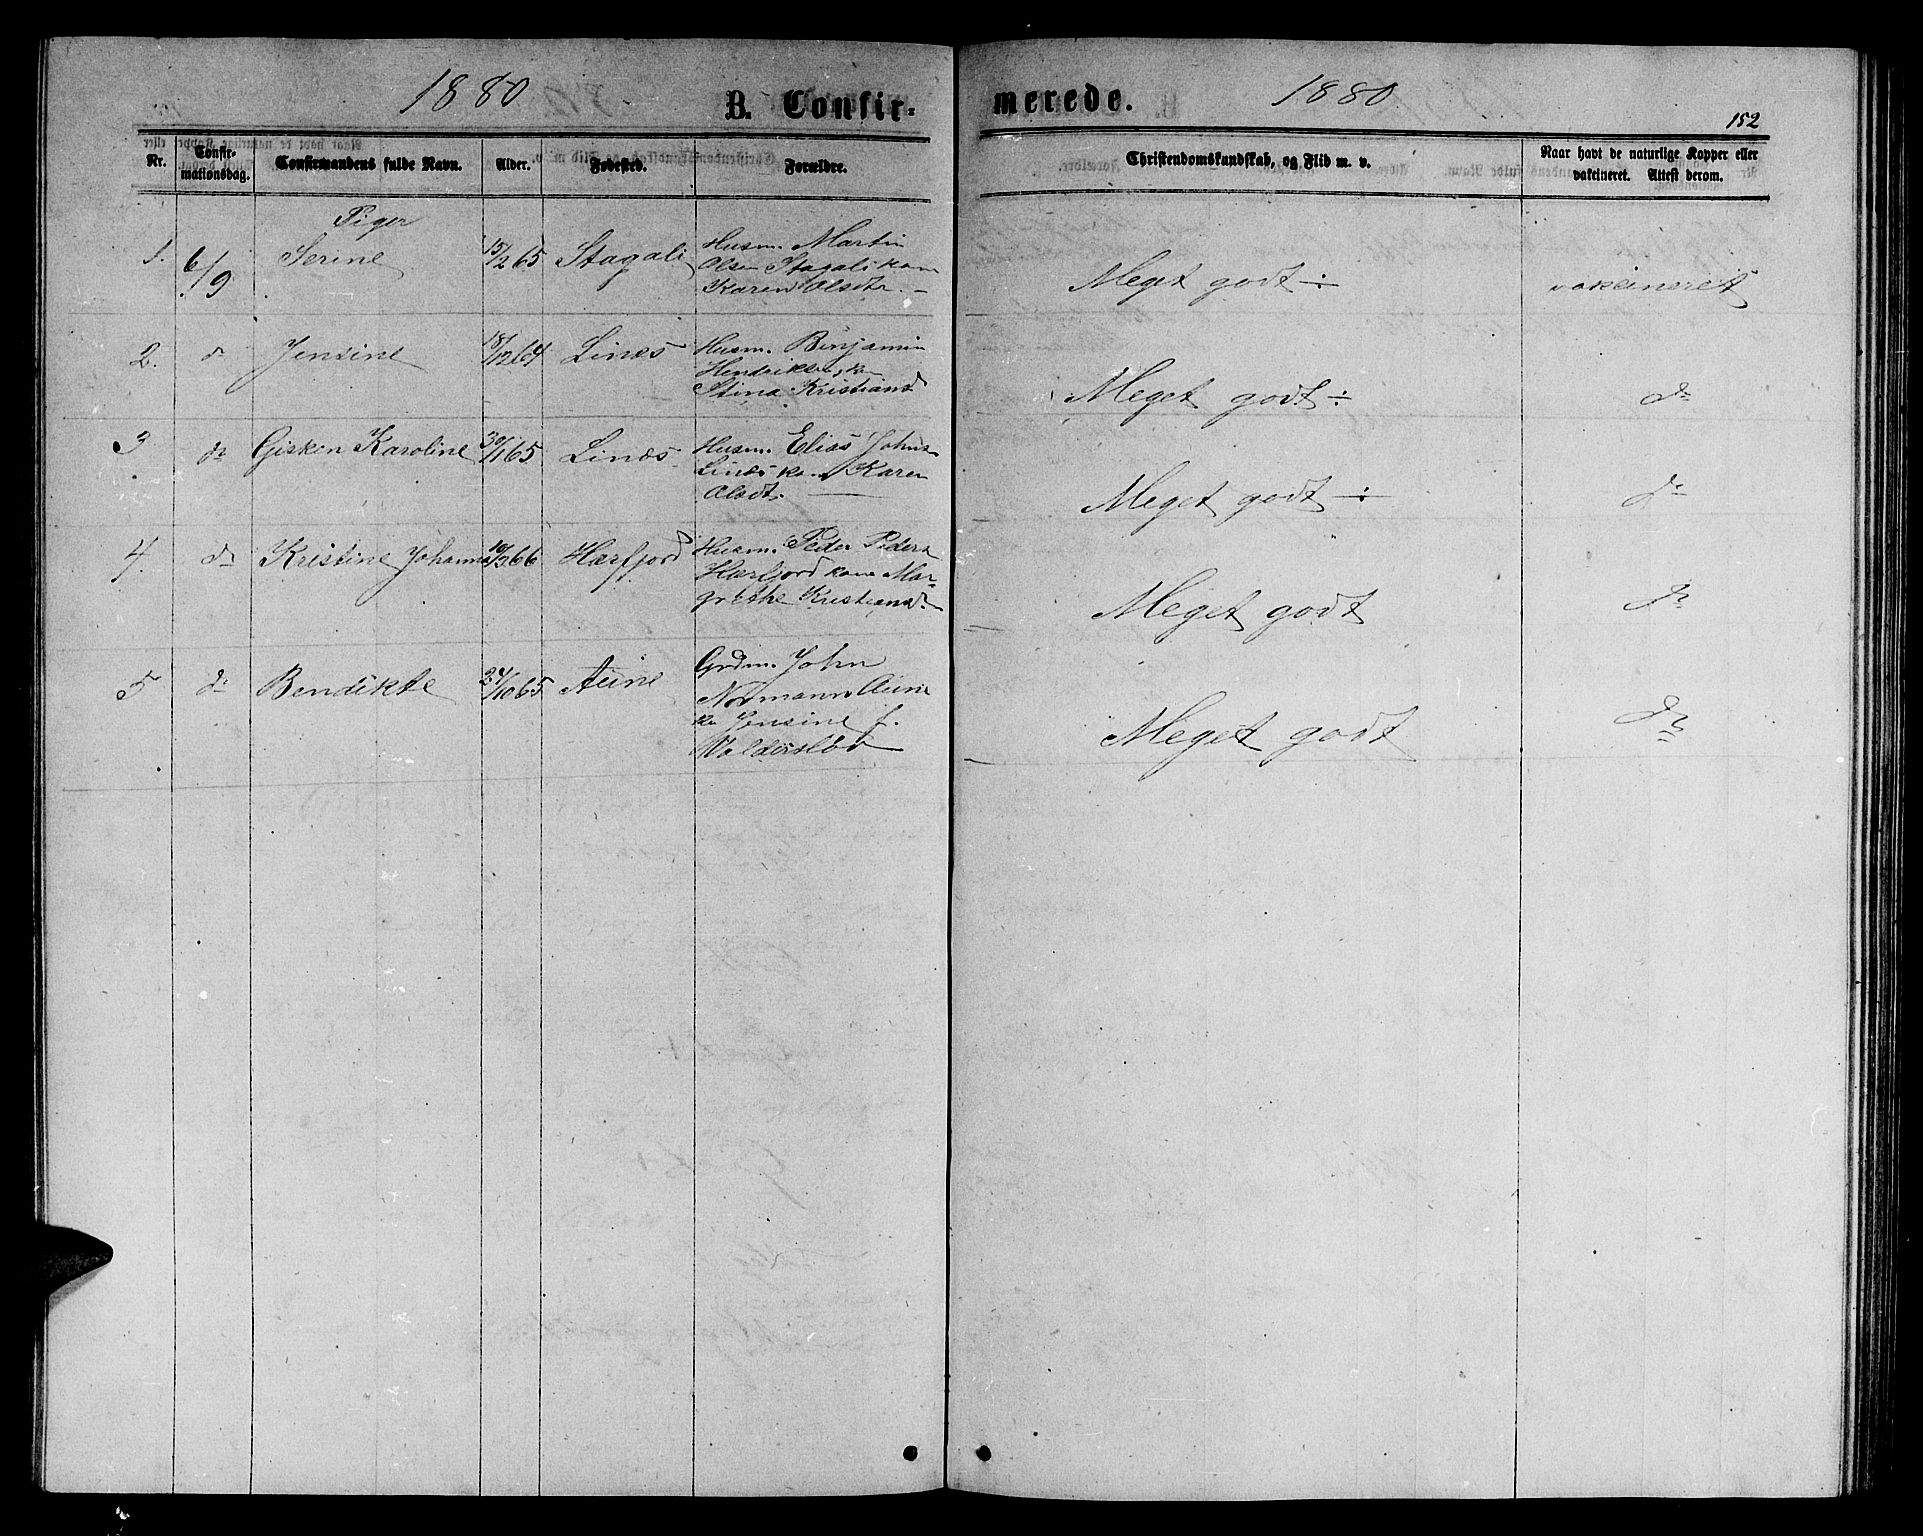 1880
B. Confir-
merede.
1880
152
Nr.
Confir-
mationsdag.
Confirmandens fulde Navn.
Alder.
Fødested.
Forældre.
Christendomskundskab, og Flid m. v.
Naar havt de naturlige Kopper eller
vakcineret. Attest derom.
Piger
1. 6/9 Serine 15/2 65 Stagali
Husm. Martin
Olsen Stagali kone
Karen Olsdtr. —
Meget godt ÷
vakcineret
2. do Jensine 18/12 64 Linæs
Husm. Benjamin
Hendriksen, kone
Stina Kristiansd
Meget godt ÷
do
3. do Gisken Karoline 30/1 65 Linæs
Husm. Elias Johns.
Linæs kone Karen
Olsdt. —
Meget godt ÷
do
4. do Kristine Johanna 10/3 66 Harfjord
Husm. Peder Peders.
Harfjord kone Mar-
grethe Kristiansd.
Meget godt
do
5 do Bendikte 24/10 65 Aune
Grdm. John
Normann Aune
ko Jensine f.
Meget godt
do